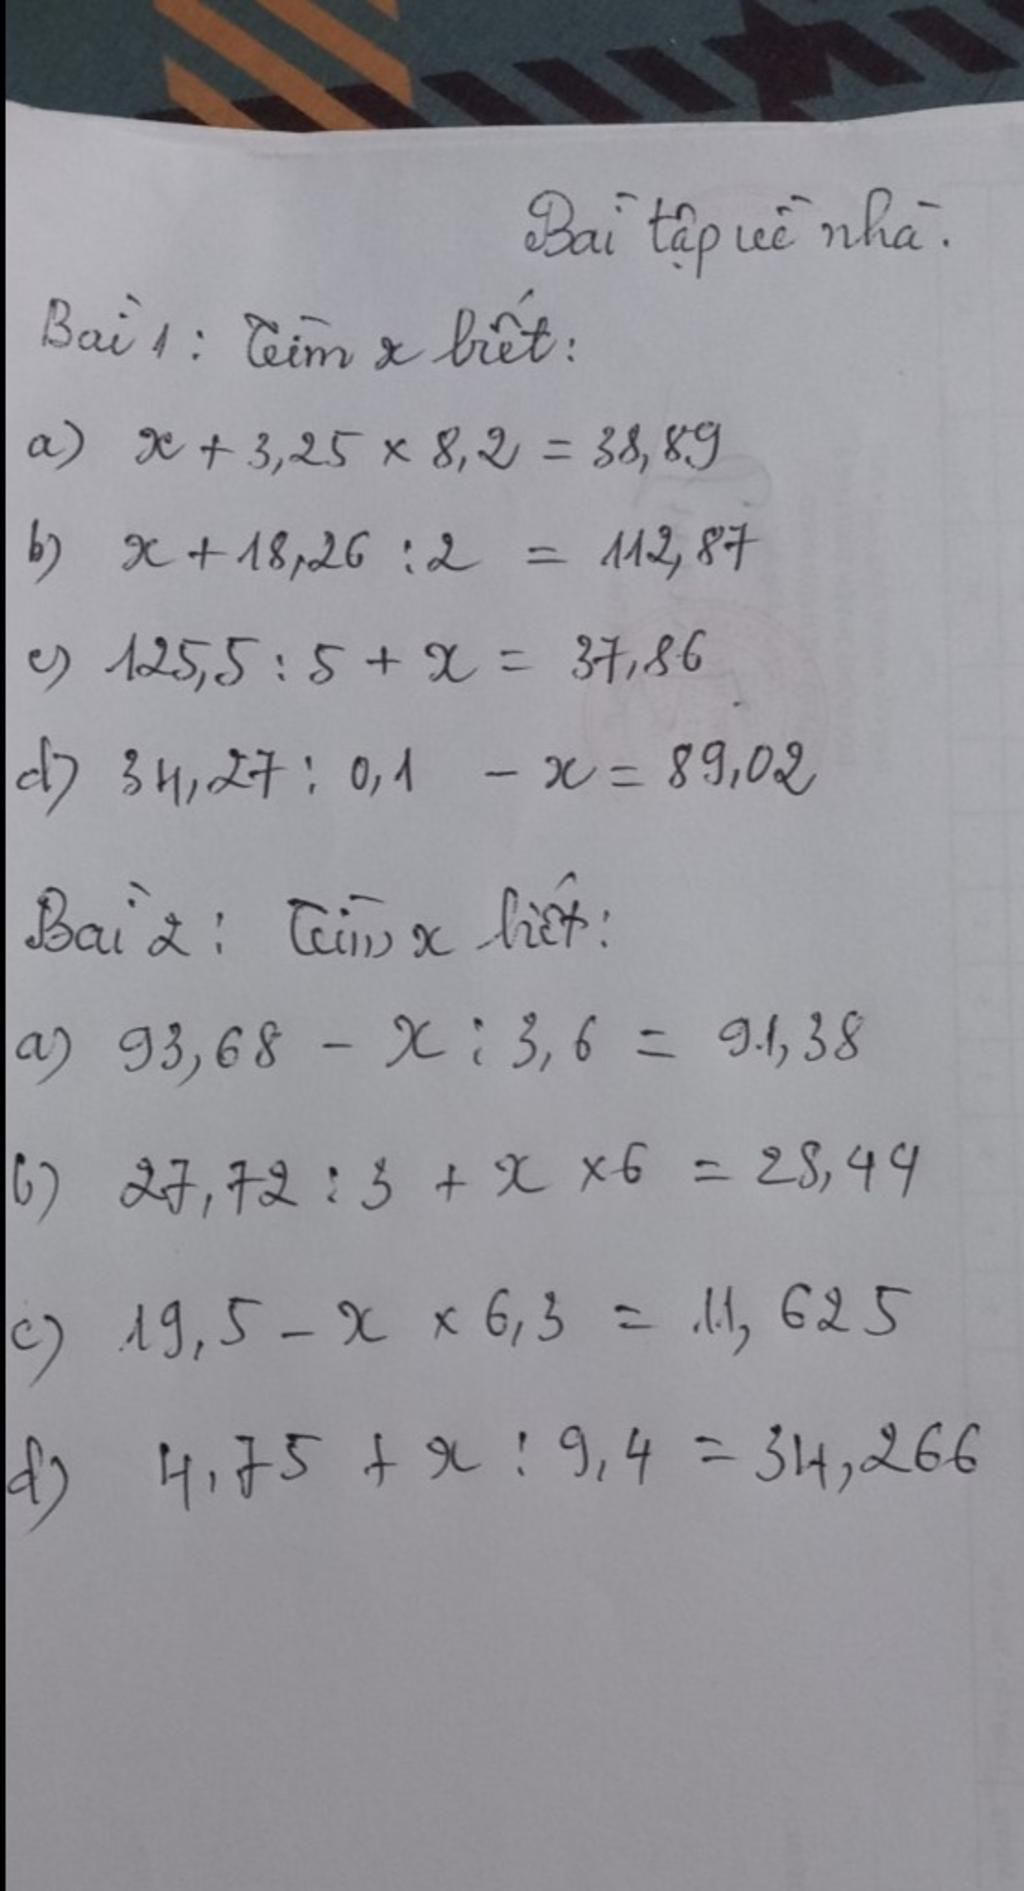 Bài tập về nhà.
Bài 1: Tìm x biết:
a) x + 3,25 × 8,2 = 38,89
b) x + 18,26 : 2 = 112,87
c) 125,5 : 5 + x = 37,86
d) 34,27 : 0,1 - x = 89,02
Bài 2: Tìm x biết:
a) 93,68 - x : 3,6 = 91,38
b) 27,72 : 3 + x × 6 = 28,44
c) 19,5 - x × 6,3 = 11,625
d) 4,75 + x : 9,4 = 34,266